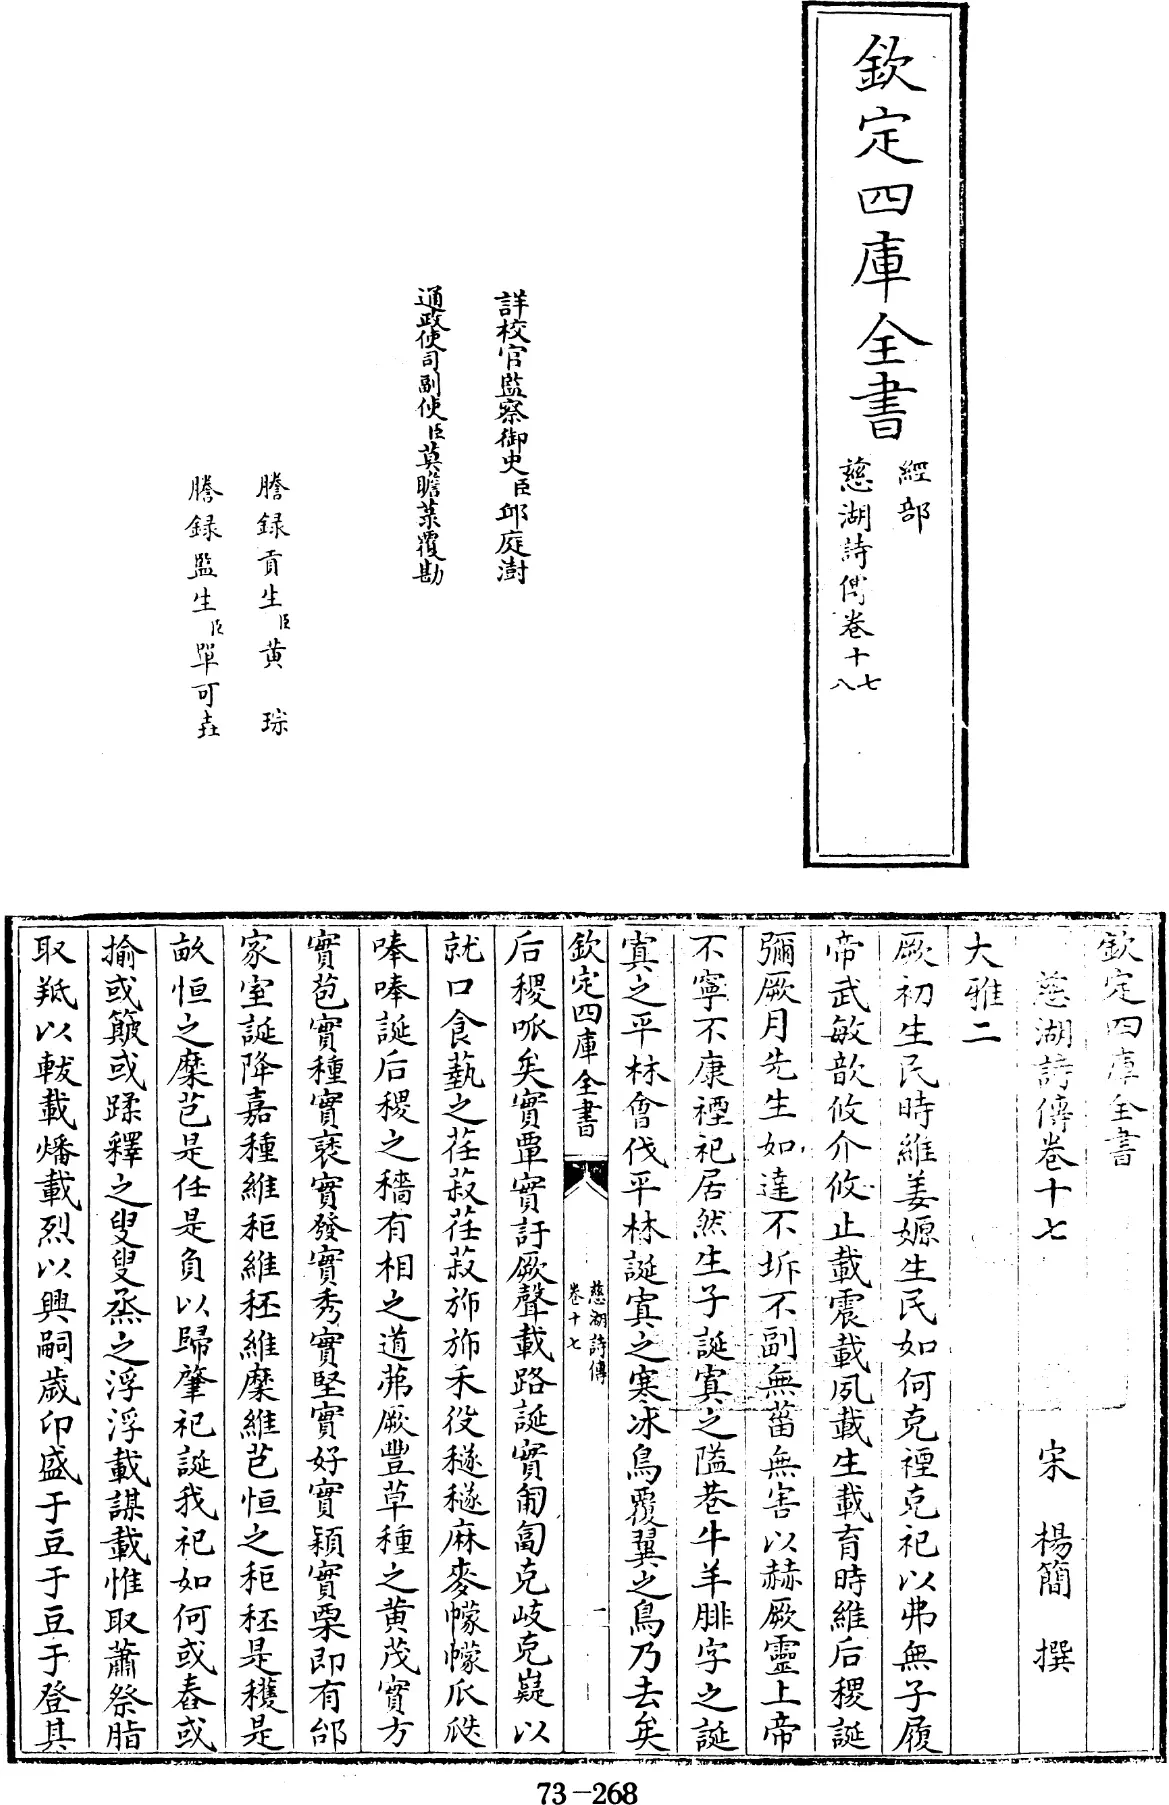 欽定四庫全書
經部
慈湖詩傳卷十七
八
詳校官監察御史臣邱庭澍
通政使司副使臣莫瞻菉覆勘
謄錄貢生臣黄琮
謄錄監生臣單可壵
欽定四庫全書
慈湖詩傳卷十七
宋 楊簡 撰
大雅二
厥初生民時維姜嫄生民如何克禋克祀以弗無子履
帝武敏歆攸介攸止載震載夙載生載育時維后稷誕
彌厥月先生如達不坼不副無菑無害以赫厥靈上帝
不寧不康禋祀居然生子誕寘之隘巷牛羊腓字之誕
寘之平林會伐平林誕寘之寒冰鳥覆翼之鳥乃去矣
欽定四庫全書
慈湖詩傳
卷十七
一
后稷呱矣實覃實訏厥聲載路誕實匍匐克岐克嶷以
就口食蓺之荏菽荏菽斾斾禾役穟穟麻麥幪幪瓜瓞
唪唪誕后稷之穡有相之道茀厥豐草種之黄茂實方
實苞實種實褎實發實秀實堅實好實穎實栗即有邰
家室誕降嘉種維秬維秠維穈維芑恒之秬秠是穫是
畝恒之穈芑是任是負以歸肇祀誕我祀如何或舂或
揄或簸或蹂釋之叟叟烝之浮浮載謀載惟取蕭祭脂
取羝以軷載燔載烈以興嗣歲卬盛于豆于豆于登其
73-268